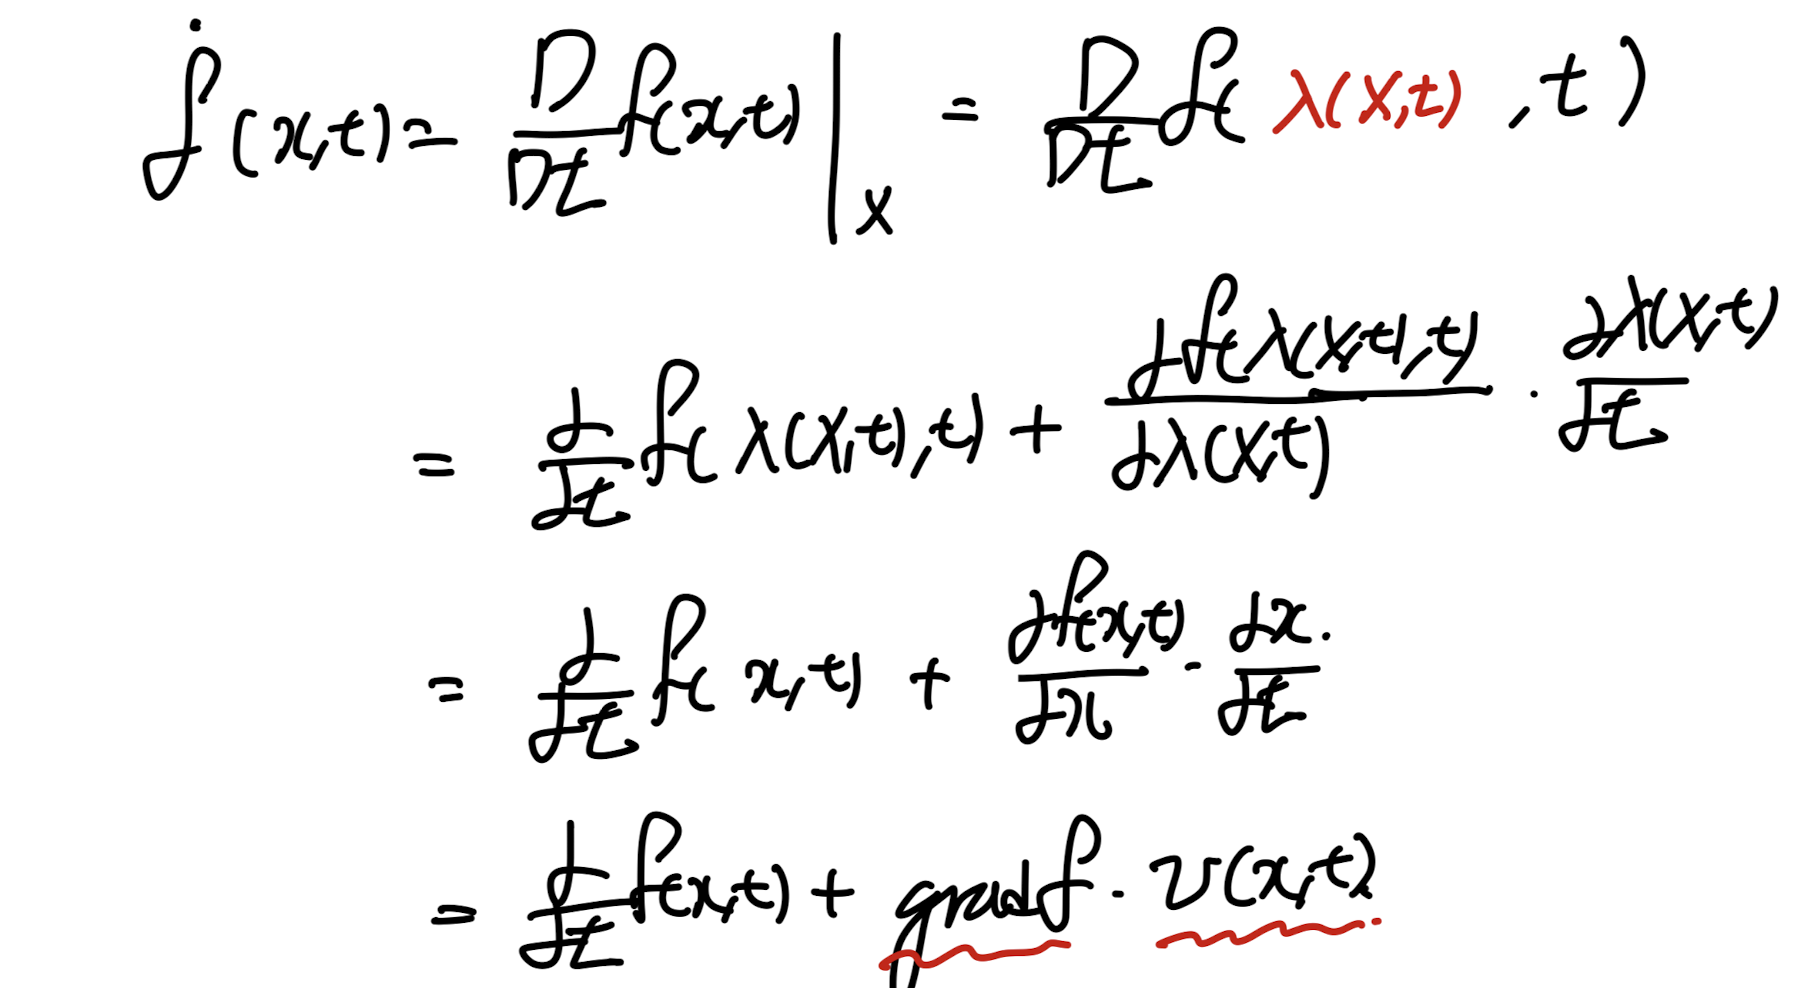 ḟ(x,t) = D/Dt f(x,t)|_X = D/Dt f( λ(X,t) , t )
= ∂/∂t f( λ(X,t), t) + ∂f(λ(X,t),t)/∂λ(X,t) · ∂λ(X,t)/∂t
= ∂/∂t f( x,t) + ∂f(x,t)/∂x · ∂x/∂t
= ∂/∂t f(x,t) + grad f · v(x,t)